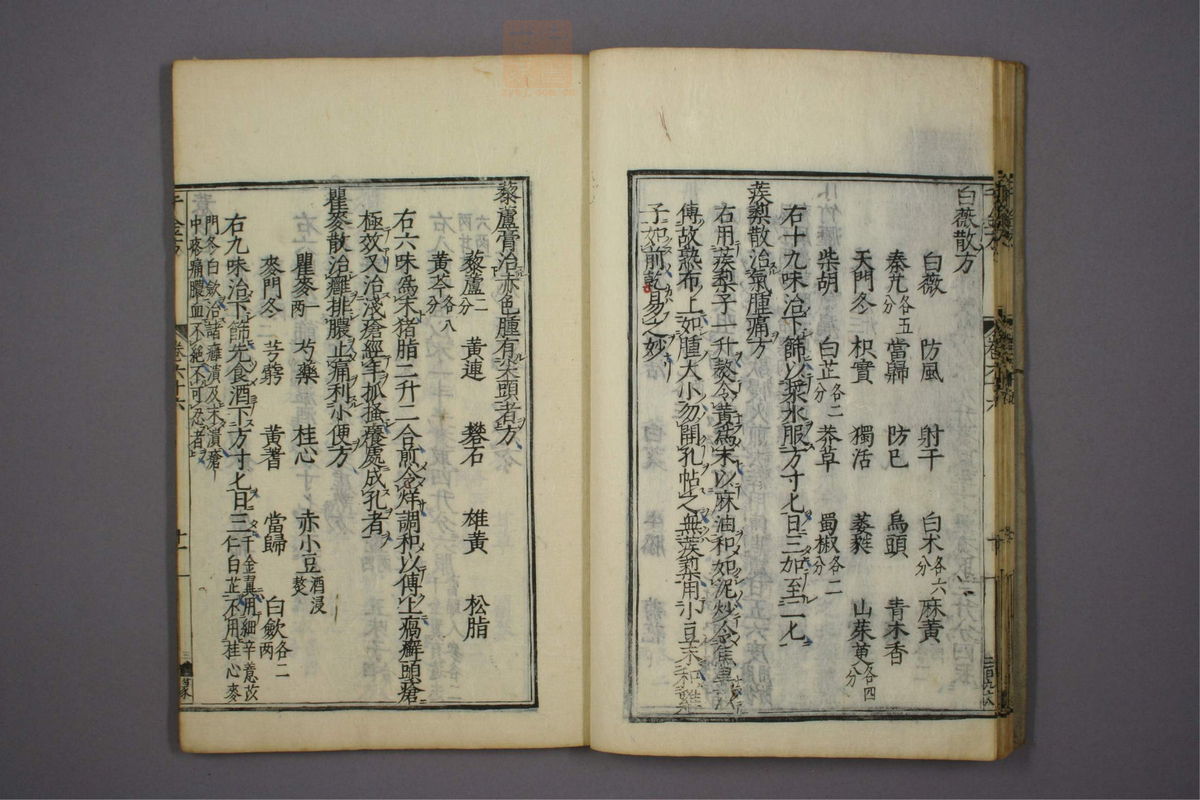 白薇散方
白薇 防風 射干 白朮各六分 麻黃
秦艽各五分 當歸 防已 烏頭 青木香
天門冬 枳實 獨活 葳蕤 山茱萸各四分
柴胡 白芷各二分 莽草 蜀椒各二分
右十九味治下篩以漿水服方寸匕日三加至二匕
蒺䔧散治氣腫痛方
右用蒺䔧子一升熬令黃爲末以麻油和如泥炒令焦黑
傅故熟布上如腫大小勿開孔帖之無蒺䔧用小豆末和雞
子如前乾易之妙
藜蘆膏治赤色腫有尖頭者方
藜蘆二分 黃連 礬石 雄黃 松脂
黃芩各八分
右六味爲末猪脂二升二合煎令烊調和以傅上瘑癬頭瘡
極效又治淺瘡經年抓搔癢處成孔者
瞿麥散治癰排膿止痛利小便方
瞿麥一兩 芍藥 桂心 赤小豆酒浸熬
麥門冬二 芎藭 黃耆 當歸 白歛各二兩
右九味治下篩先食酒下方寸匕日三千金翼用細辛薏苡仁白芷不用桂心麥
門冬白歛治諸癰潰及未潰瘡中疼痛膿血不絕不可忍者
卷六十六